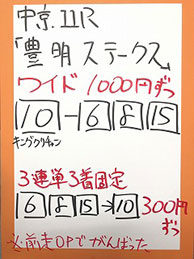 中京11R
「豊明ステークス」
ワイド 1000円ずつ
10-6 8 15
キングクリチャン
3連単3着固定
6 8 15→10 300円
ずつ
※前走OPでがんばった